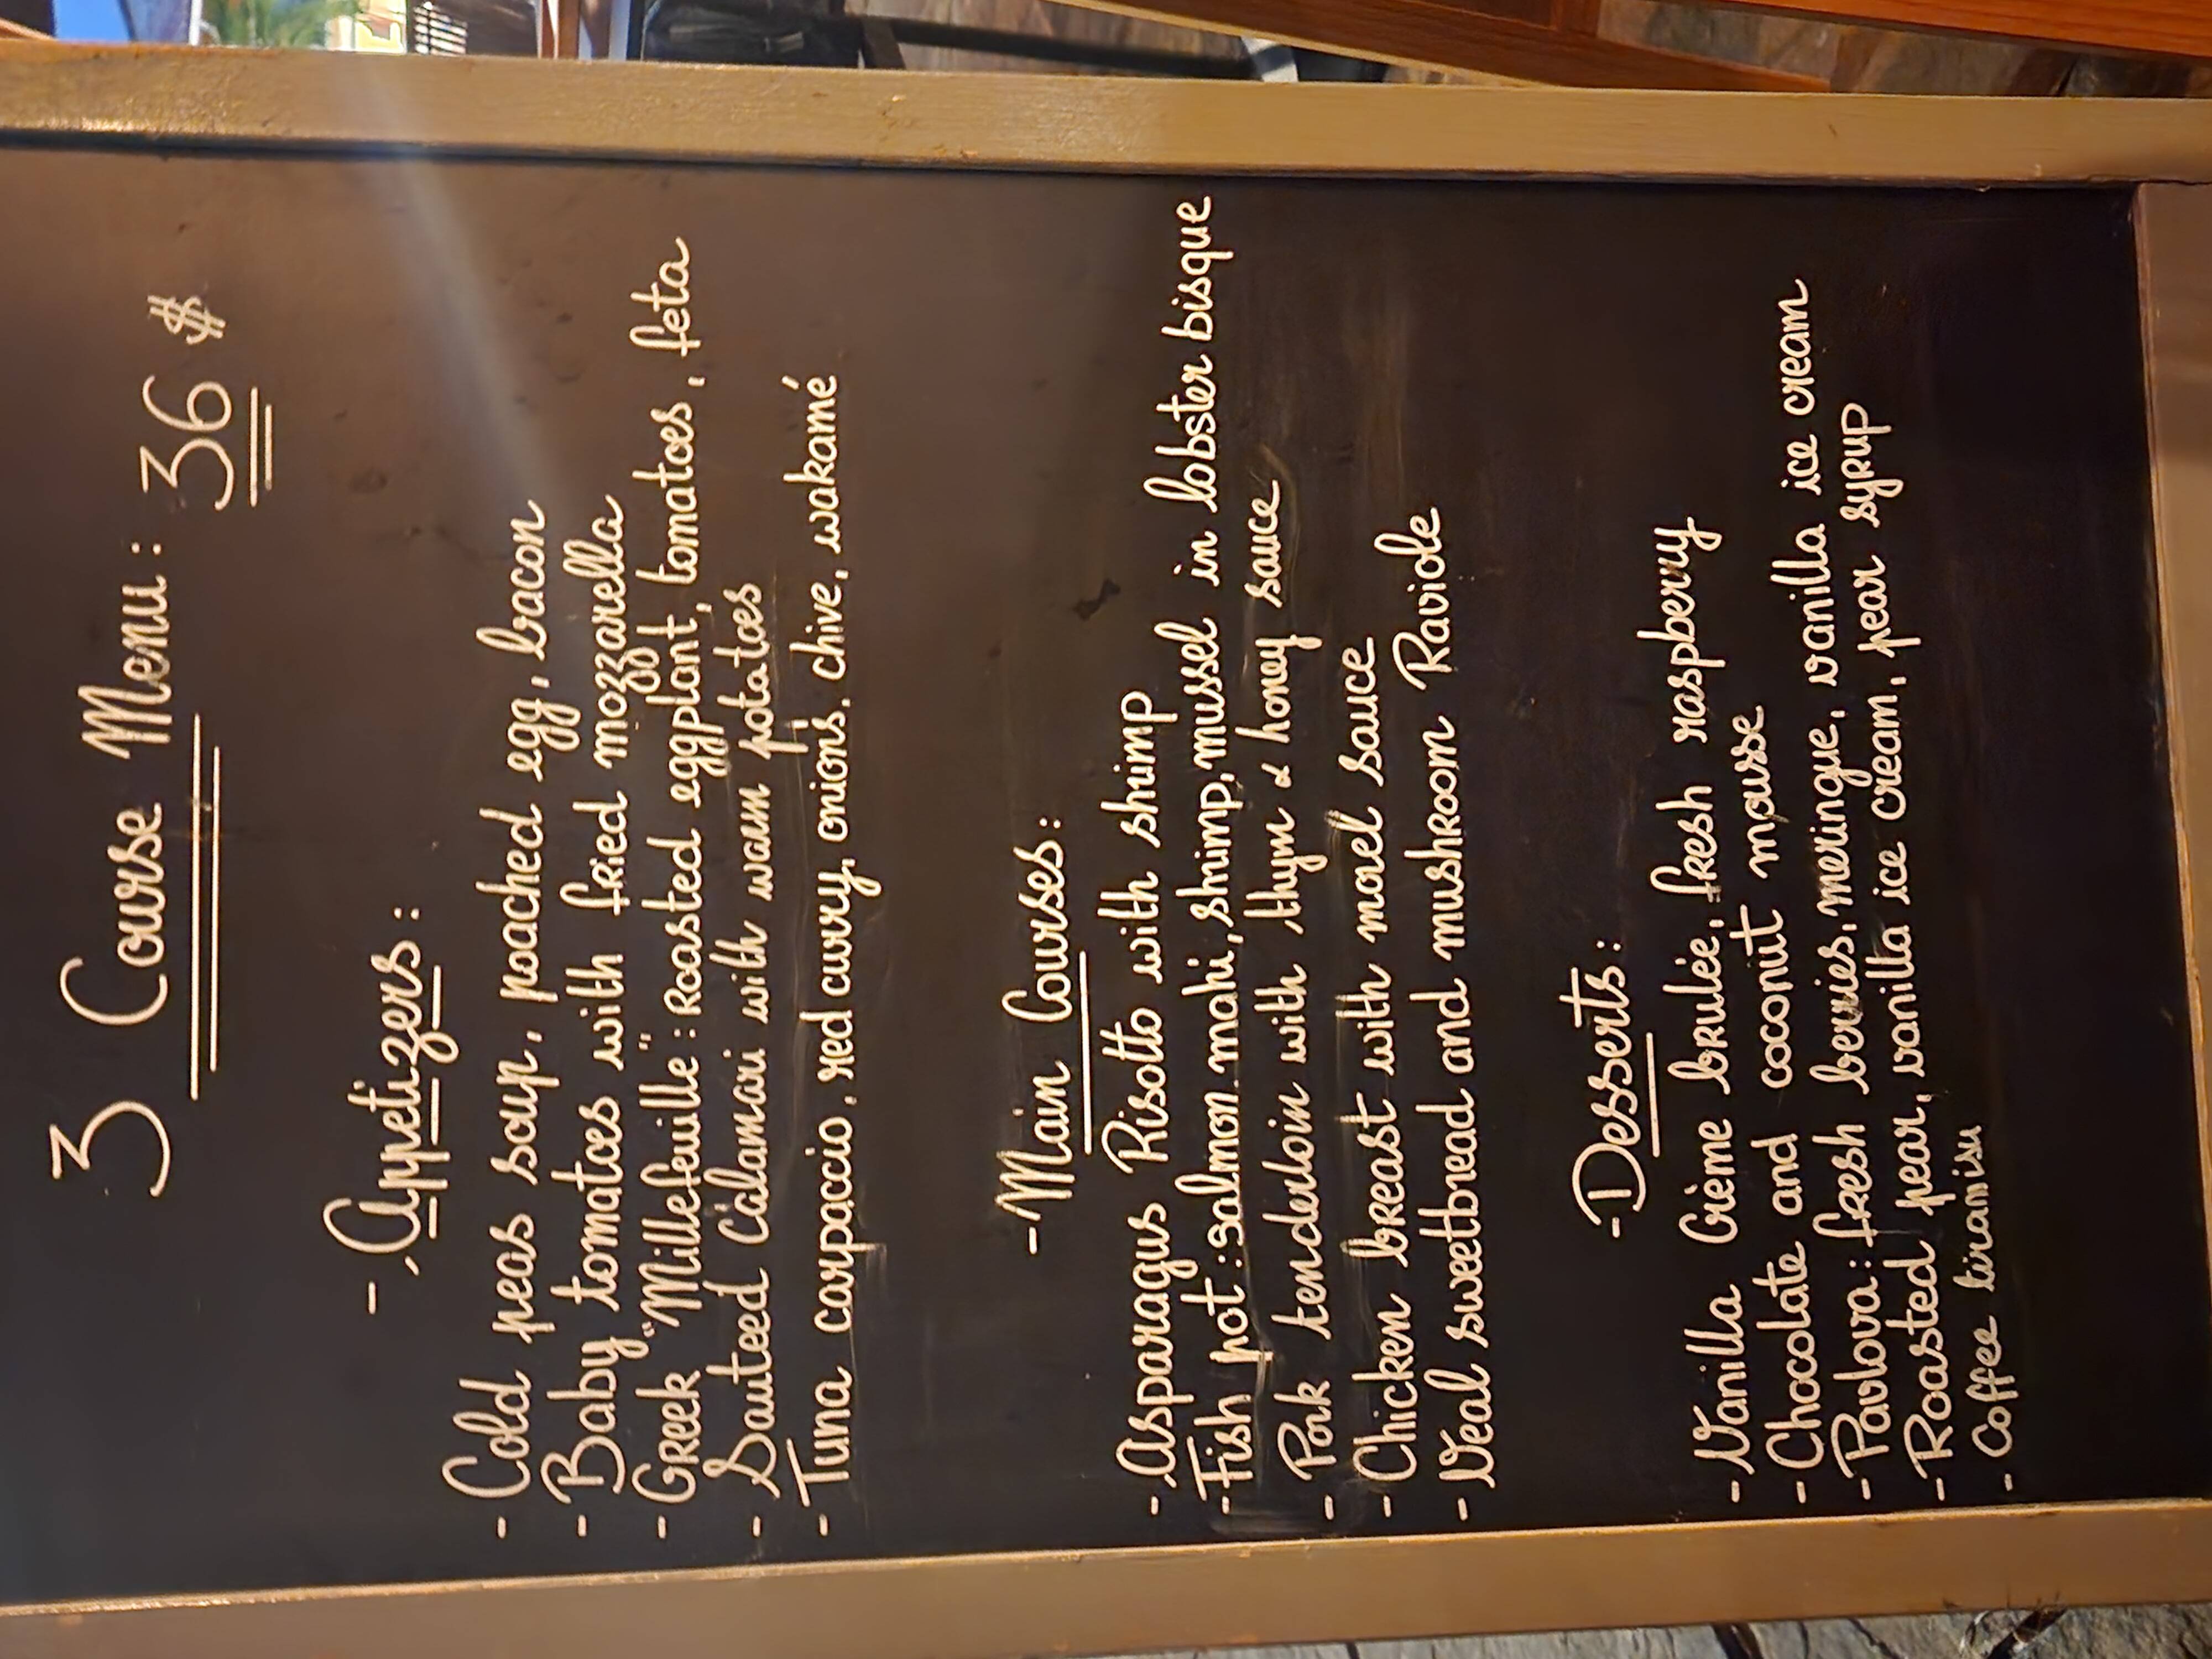 3 Course Menu: 36 $
- Appetizers:
- Cold peas soup, poached egg, bacon
- Baby tomatoes with fried mozzarella
- Greek "Millefeuille": Roasted eggplant, tomatoes, feta
- Sauteed Calamari with warm potatoes
- Tuna carpaccio, red curry, onions, chive, wakamé
- Main Courses:
- Asparagus Risotto with shrimp
- Fish pot: salmon, mahi, shrimp, mussel in lobster bisque
- Pork tenderloin with thym & honey sauce
- Chicken breast with morel sauce
- Veal sweetbread and mushroom Raviole
- Desserts:
- Vanilla Crème brulée, fresh raspberry
- Chocolate and coconut mousse
- Pavlova: fresh berries, meringue, vanilla ice cream
- Roasted pear, vanilla ice cream, pear syrup
- Coffee tiramisu